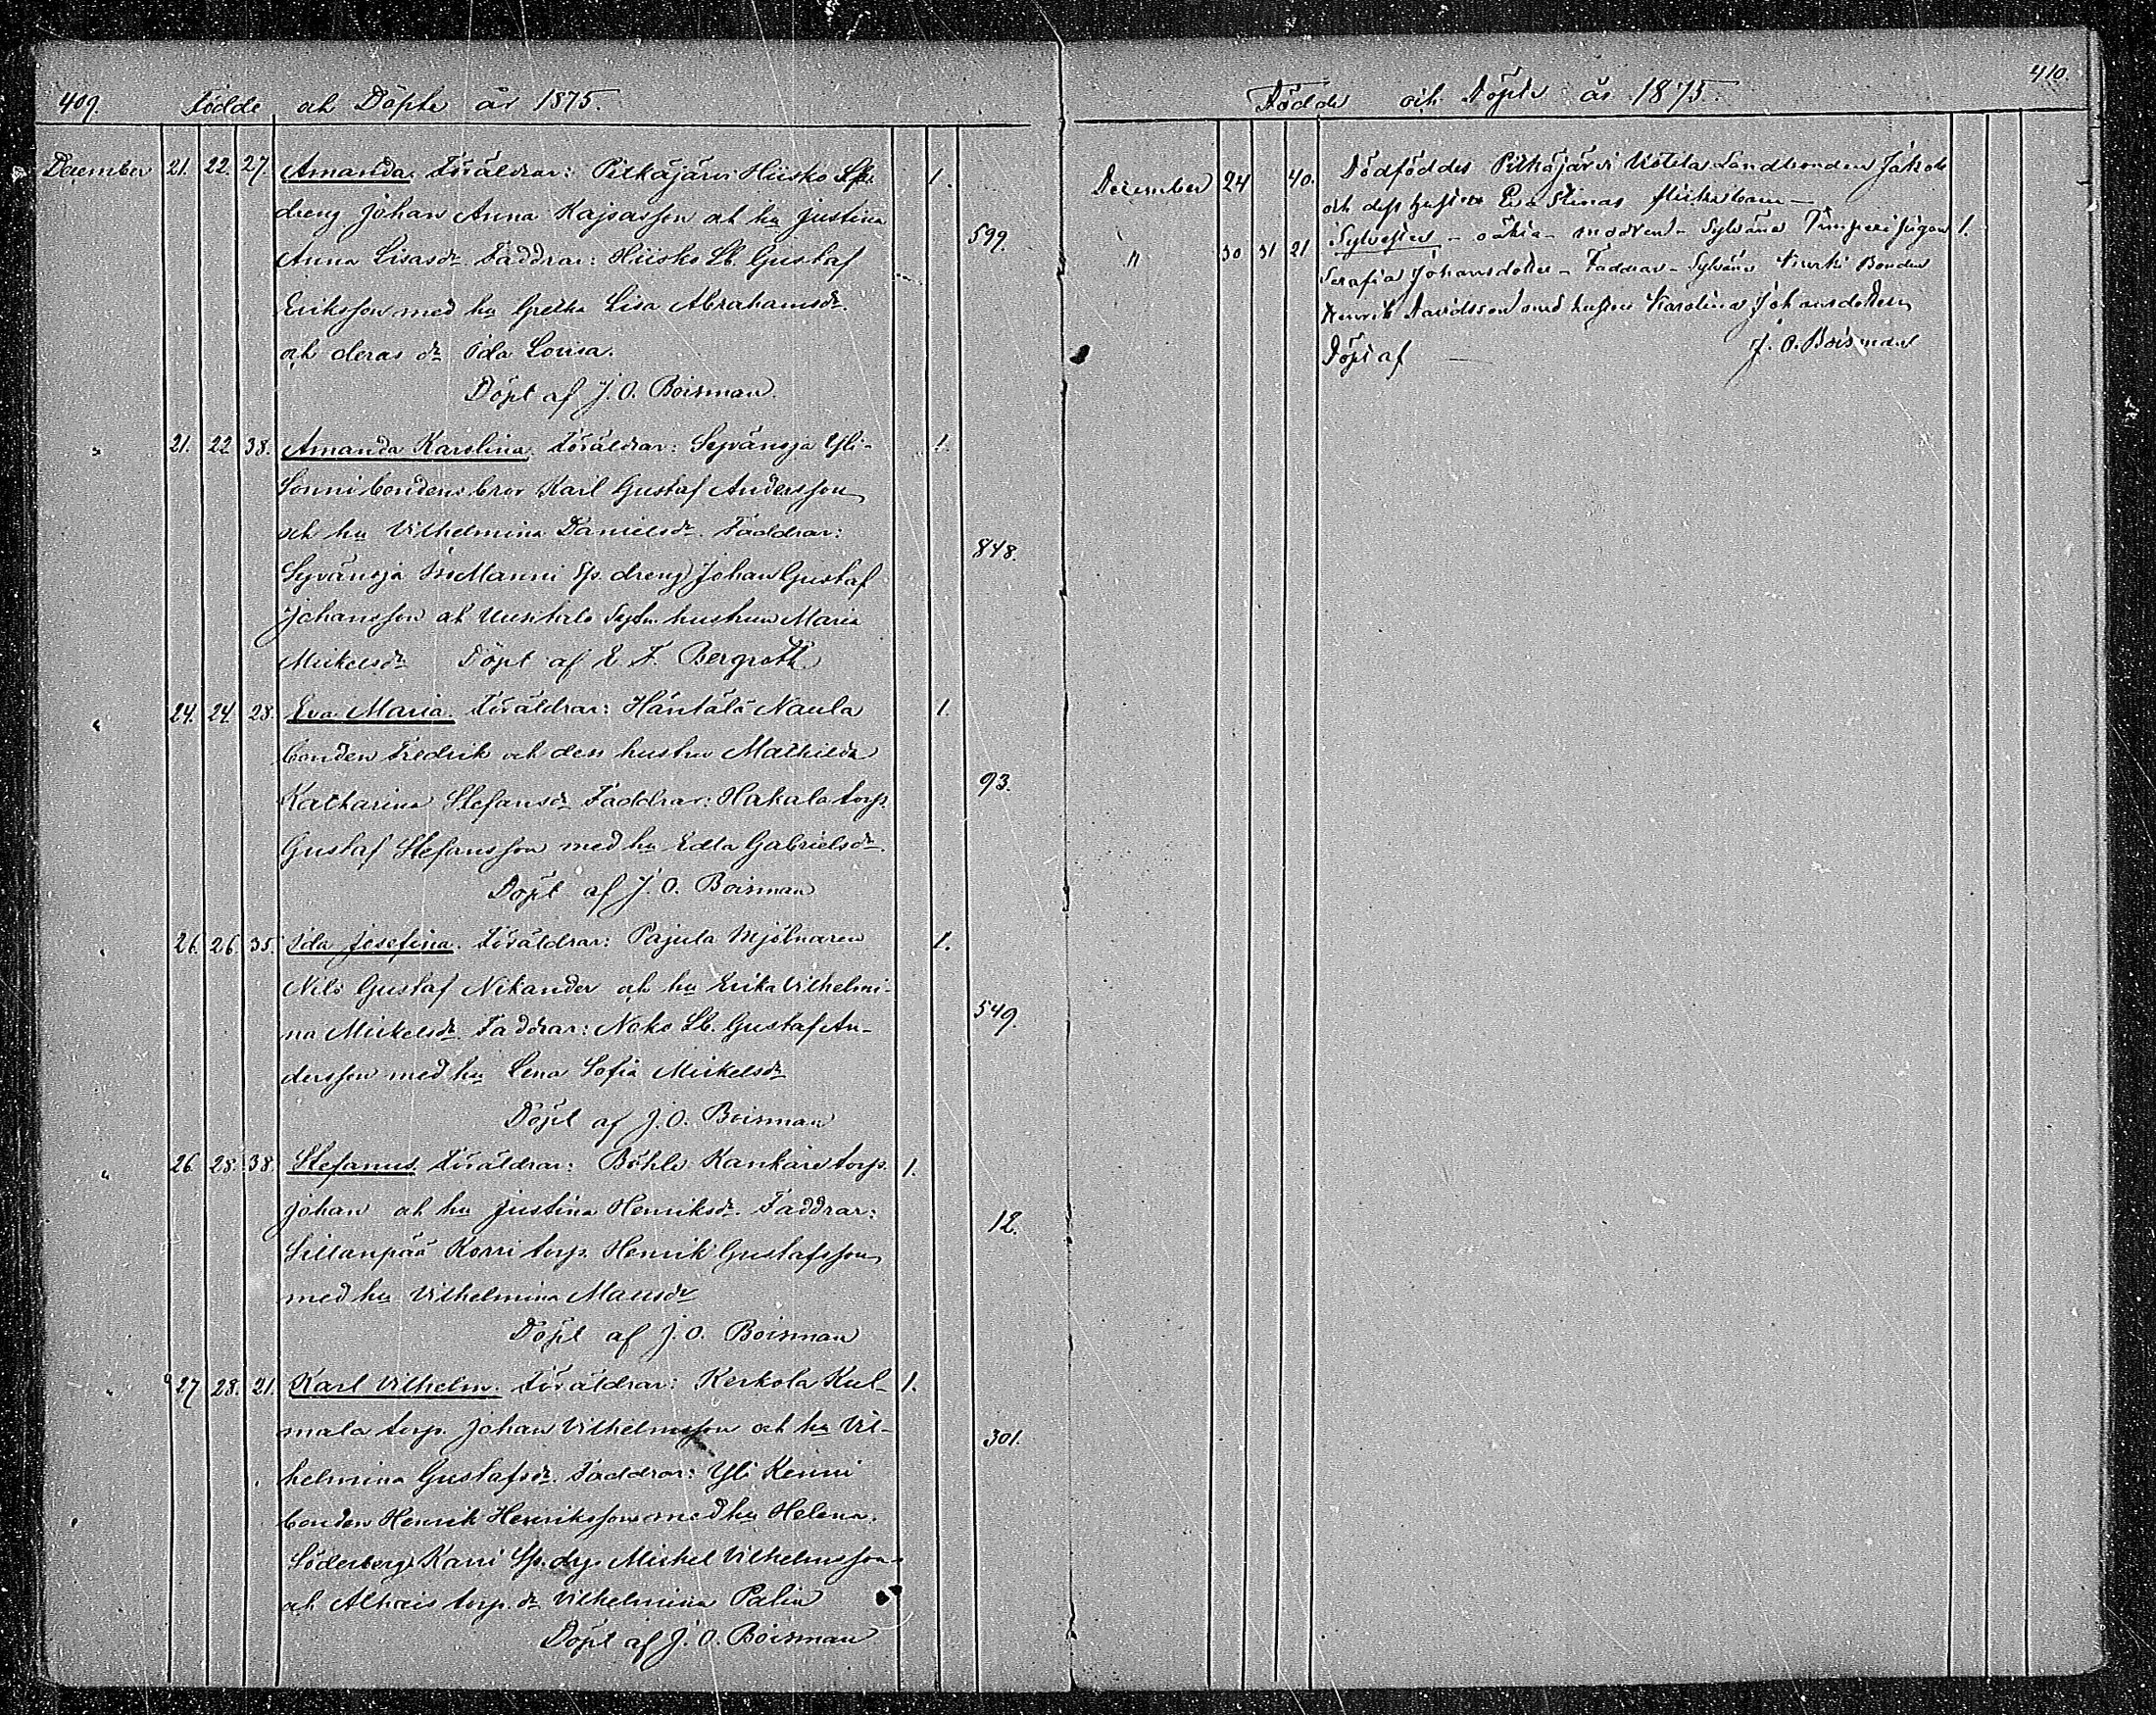 409 Födde och Döpte år 1875.
December 21. 22. 27. Amanda. Föräldrar: Pitkäjärvi Hiisko Sp.
dreng Johan Anna Kajsasson och hu Justina
599.
Anna Lisasdr. Faddrar: Hiisko Lb. Gustaf
Eriksson med hu Gretha Lisa Abrahamsdr.
och deras dr Ida Lovisa.
Döpt af J. O. Boisman.
" 21. 22. 38. Amanda Karolina. Föräldrar: Syvänoja Yli- 1.
Sonni bondens bror Karl Gustaf Andersson
och hu Vilhelmina Danielsdr. Faddrar:
848.
Syvänoja Manni Sp. dreng Johan Gustaf
Johansson och Uusitalo hustrun Maria
Mickelsdr Döpt af E. F. Bergroth
" 24. 24. 28. Eva Maria. Föräldrar: Häntälä Naula 1.
bonden Fredrik och dess hustru Mathilda
93.
Katharina Stefansdr Faddrar: Hakala torp.
Gustaf Stefansson med hu Edla Gabrielsdr.
Döpt af J. O. Boisman
" 26. 26. 35. Ida Josefina. Föräldrar: Pajula Mjölnaren 1.
Nils Gustaf Nikander och hu Erika Vilhelmi-
549.
na Mickelsdr. Faddrar: Noko Lb. Gustaf An-
dersson med hu Lena Sofia Mickelsdr
Döpt af J. O. Boisman
" 26. 28. 38. Stefanus. Föräldrar: Böhle Kankare torp. 1.
Johan och hu Justina Henriksdr. Faddrar:
12.
Sillanpää Korri torp. Henrik Gustafsson
med hu Vilhelmina Mausdr
Döpt af J. O. Boisman
" 27. 28. 21. Karl Vilhelm. Föräldrar: Kerkola Kul- 1.
mala torp. Johan Vilhelmsson och hu Vil-
301.
helmina Gustafsdr. Faddrar: Yli Kenni
bonden Henrik Henriksson med hu Helena
Söderberg, Karri Sp. drg. Mickel Vilhelmsson
och torp. dr Vilhelmina Palin
Döpt af J. O. Boisman
Födde och Döpte år 1875. 410.
December 24 40. Dödföddes Pitkäjärvi Uotila Landbonden Jakob
och dess hustru Eva Stinas flickebarn –
" 30 31 21 Sylvester – oäkta – modren – Sylvänä pigan 1.
Serafia Johansdotter – Faddrar – Sylvänä Bonden
Henrik Davidsson med hustru Karolina Johansdotter
Döpt af J. O. Boisman